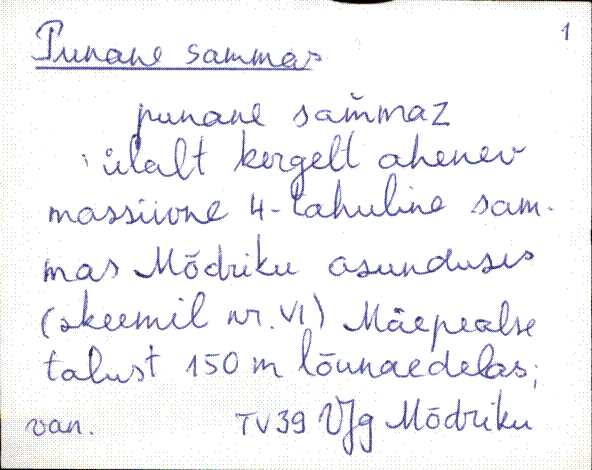 1
Punane sammas
punane sam̆maz
ülalt kergelt ahenev
massiivne 4-tahuline sam-
mas Mõdriku asunduses
(skeemil nr. VI) Mäepealse
talust 150 m lõunaedelas;
van. TV39 VJg Mõdriku